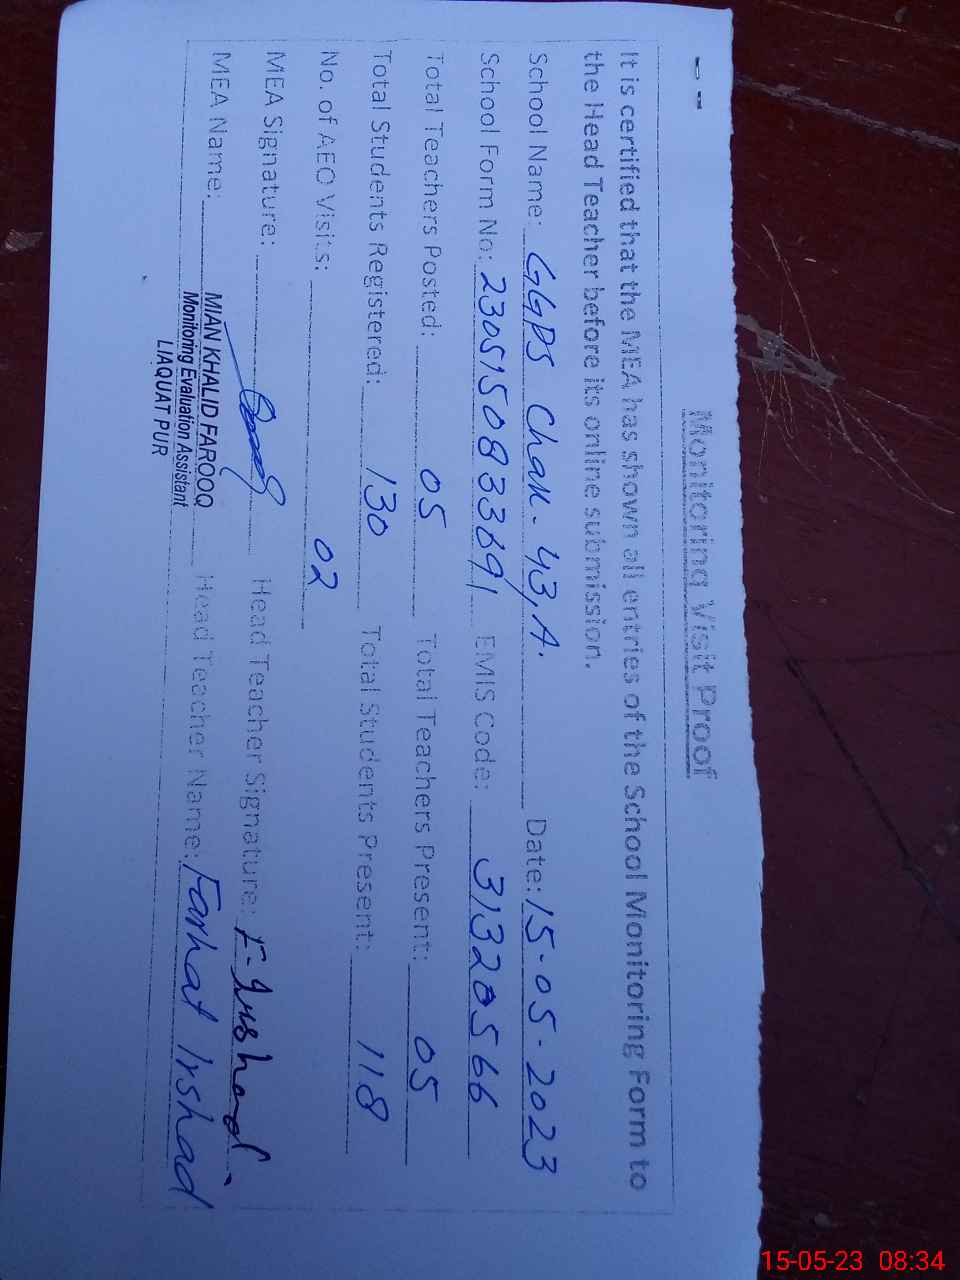 Monitoring Visit Proof
It is certified that the MEA has shown all entries of the School Monitoring Form to
the Head Teacher before its online submission.
School Name: GGPS Chak-43,A. Date: 15-05-2023
School Form No: 23051508333691 EMIS Code: 31320566
Total Teachers Posted: 05 Total Teachers Present: 05
Total Students Registered: 130 Total Students Present: 118
No. of AEO Visits: 02
MEA Signature: Head Teacher Signature: F-Irshad
MEA Name: MIAN KHALID FAROOQ Head Teacher Name: Farhat Irshad
Monitoring Evaluation Assistant
LIAQUAT PUR
15-05-23 08:34